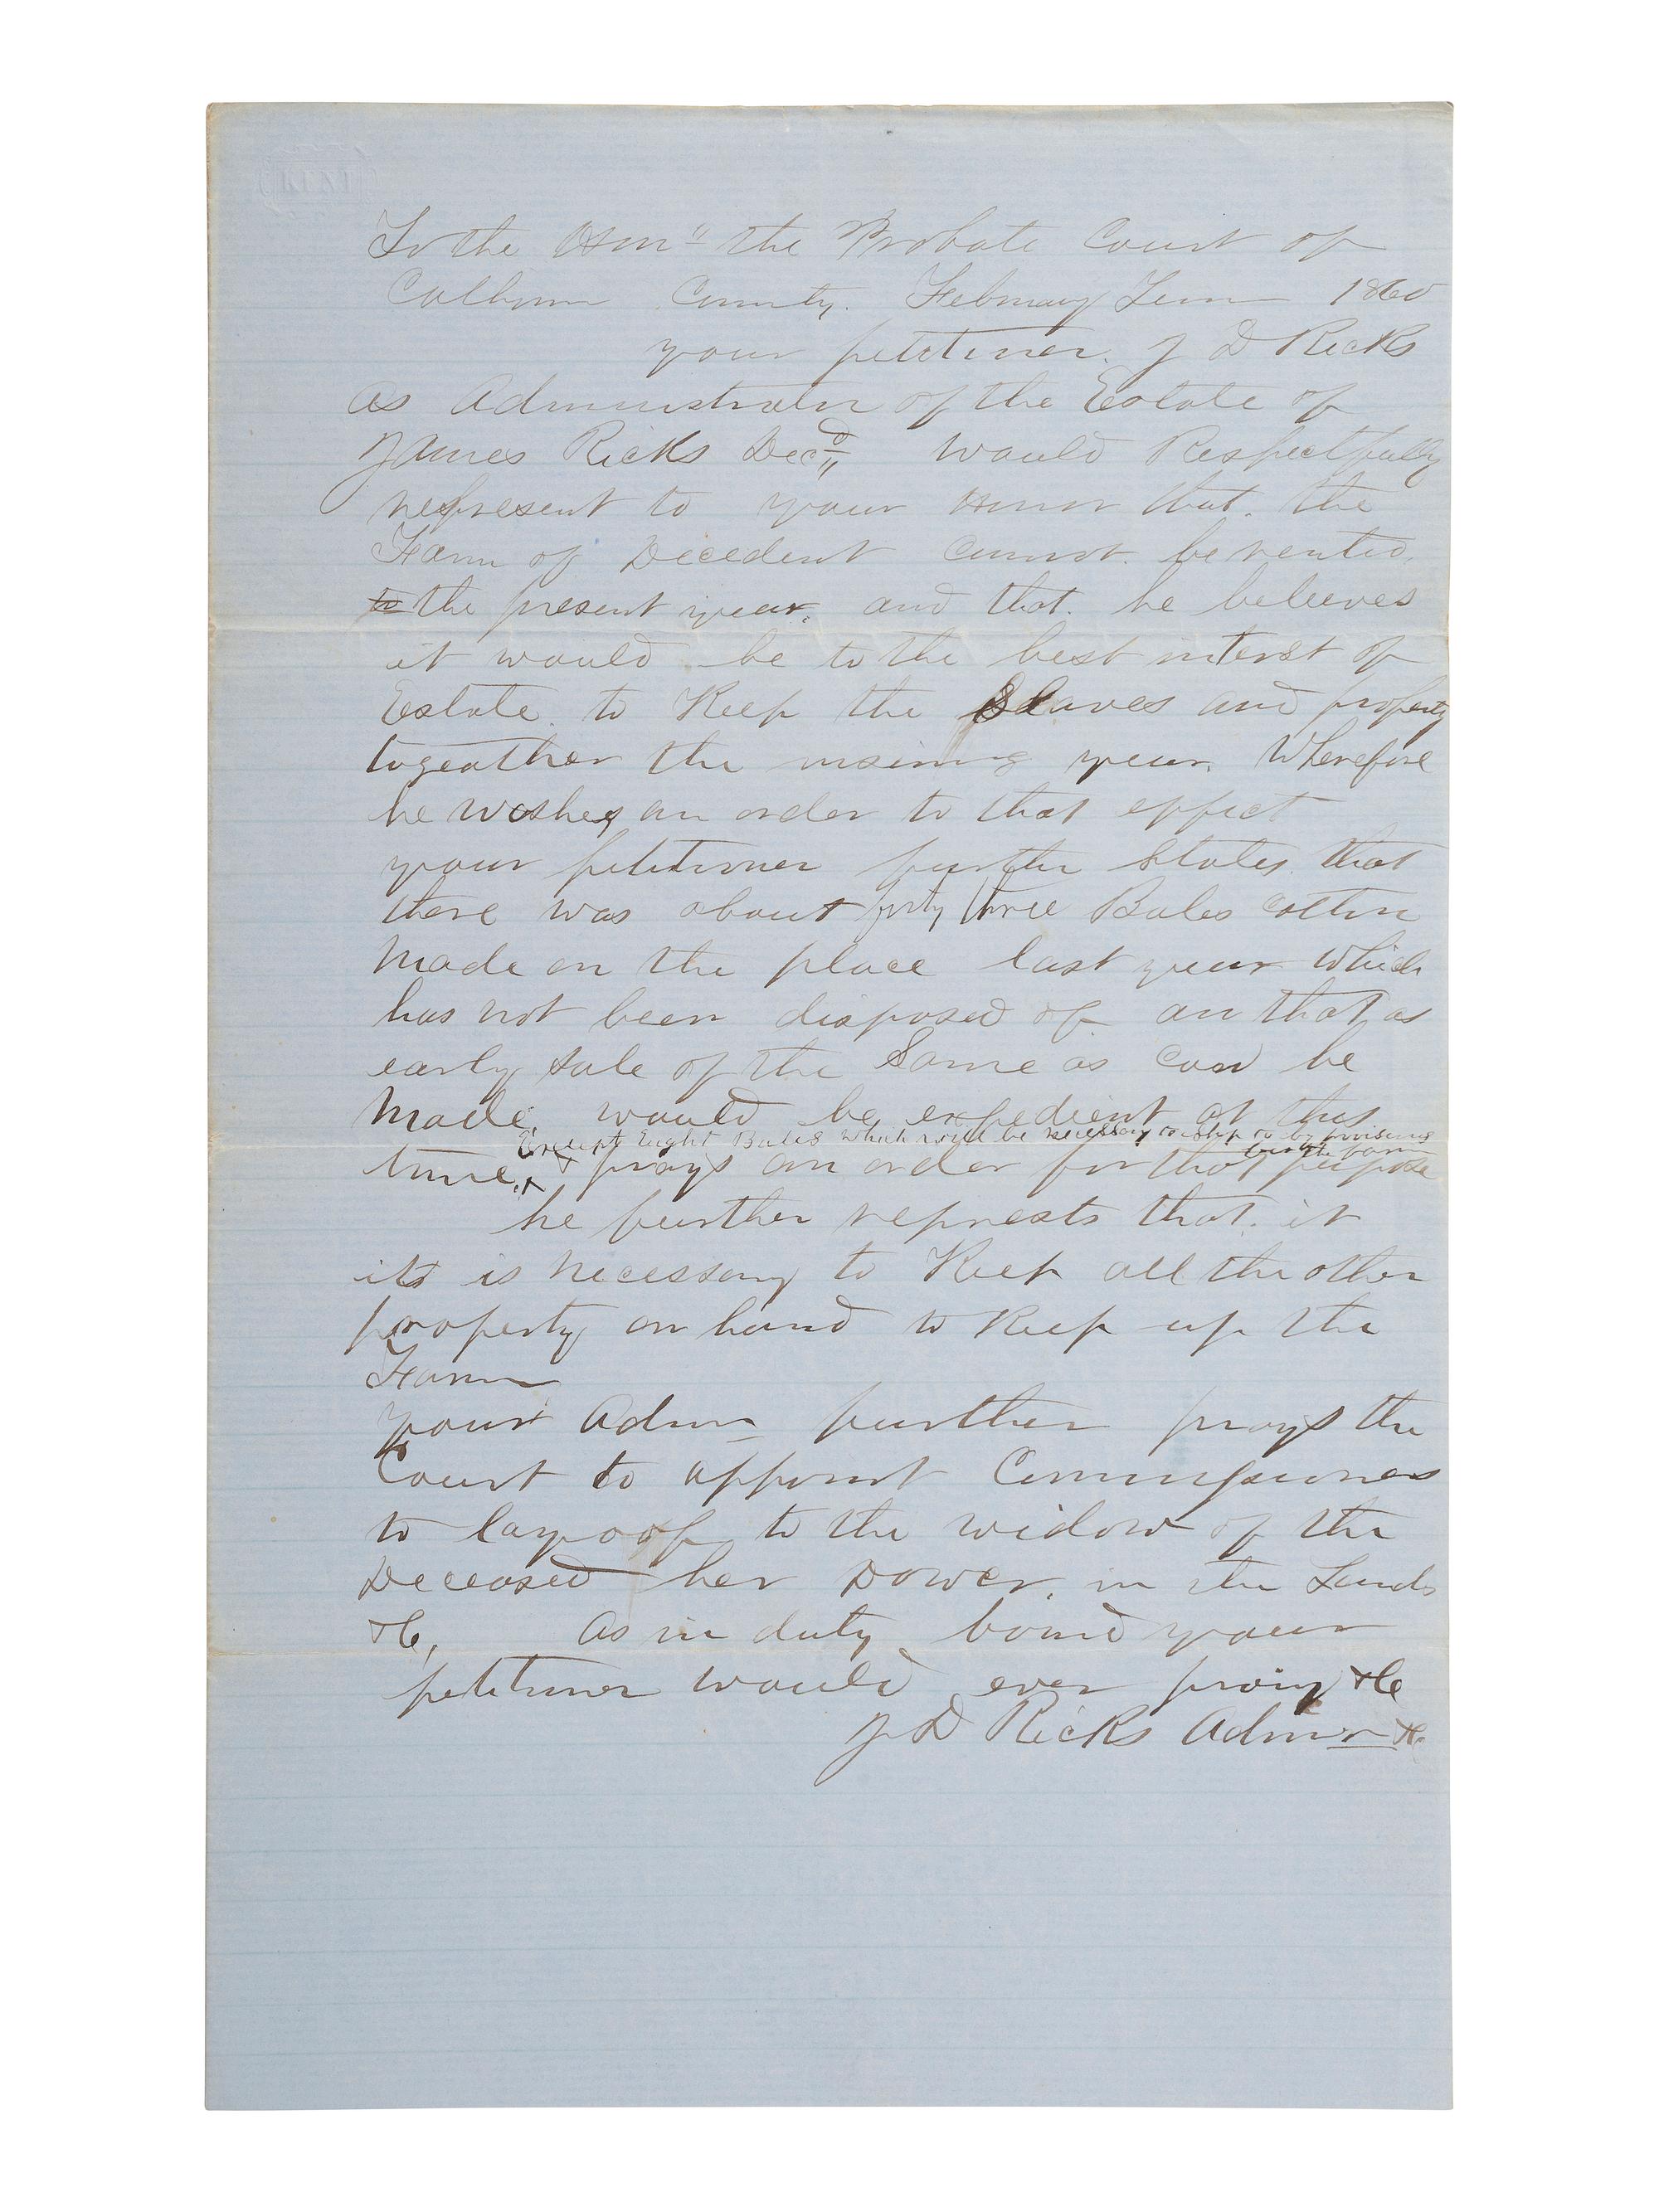 KENT
To the Honl the Probate Court of
Calhoun County. February Term 1860
your petitiner. J D Ricks
as Administrator of the Estate of
James Ricks Decd would Respectfully
represent to your Honor that. the
Farm of Decedent cannot. be rented.
to the present year, and that. he beleeves
it would be to the best interst of
Estate. to Keep the Slaves and property
togeather the insuing year. Wherefore
he wishes an order to that effect
your petitioner further States that
there was about forty three Bales cotton
made on the place last year which
has not been disposed of an that as
early sale of the Same as can be
made, would be expedient at this
Except Eight Bales which will be necessary to ship to by provisions
for the farm
time. & prays an order for that purpose
he further represts that. it
its is necessary to Keep all the other
property on hand to Keep up the
Farm
your Admr further prays the
Court to appoint Commissioners
to lay off to the widow of the
Deceased her Dower. in the Lands
&c, As in duty bound your
petitioner would ever pray &c
J D Ricks Admr &c